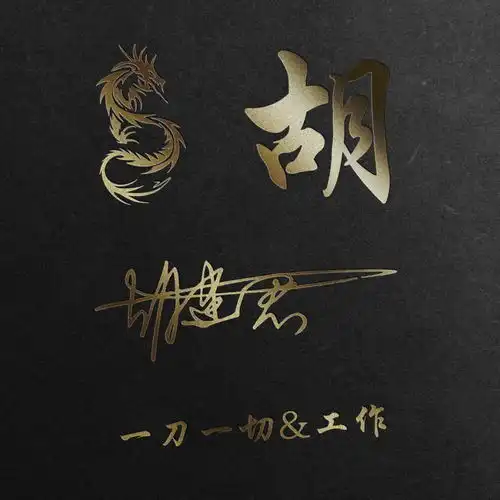 胡
胡
一刀一切&工作